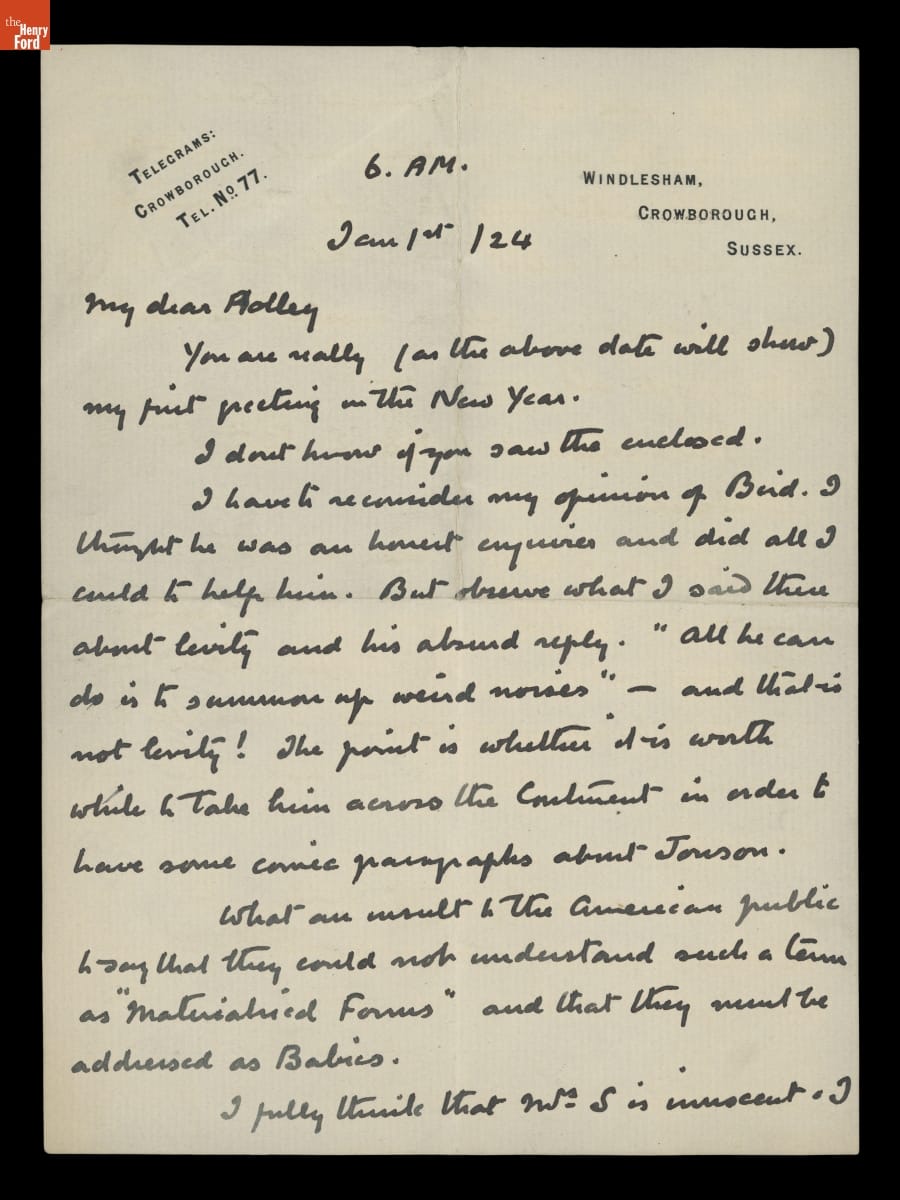 the
Henry
Ford
TELEGRAMS:
CROWBOROUGH.
TEL. NO. 77.
WINDLESHAM,
CROWBOROUGH,
SUSSEX.
6. AM.
Jan 1st /24
My dear
You are really (as the above date will show)
my first greeting in the New Year.
I dont know if you saw the enclosed.
I have to reconsider my opinion of Bird. I
thought he was an honest enquirer and did all I
could to help him. But observe what I said there
about levity and his absurd reply. "All he can
do is to summon up weird noises" — and that is
not levity! The point is whether it is worth
while to take him across the Continent in order to
have some comic paragraphs about Jonson.
What an insult to the American public
to say that they could not understand such a term
as "Materialised Forms" and that they must be
addressed as Babies.
I fully think that Mrs S is innocent. I